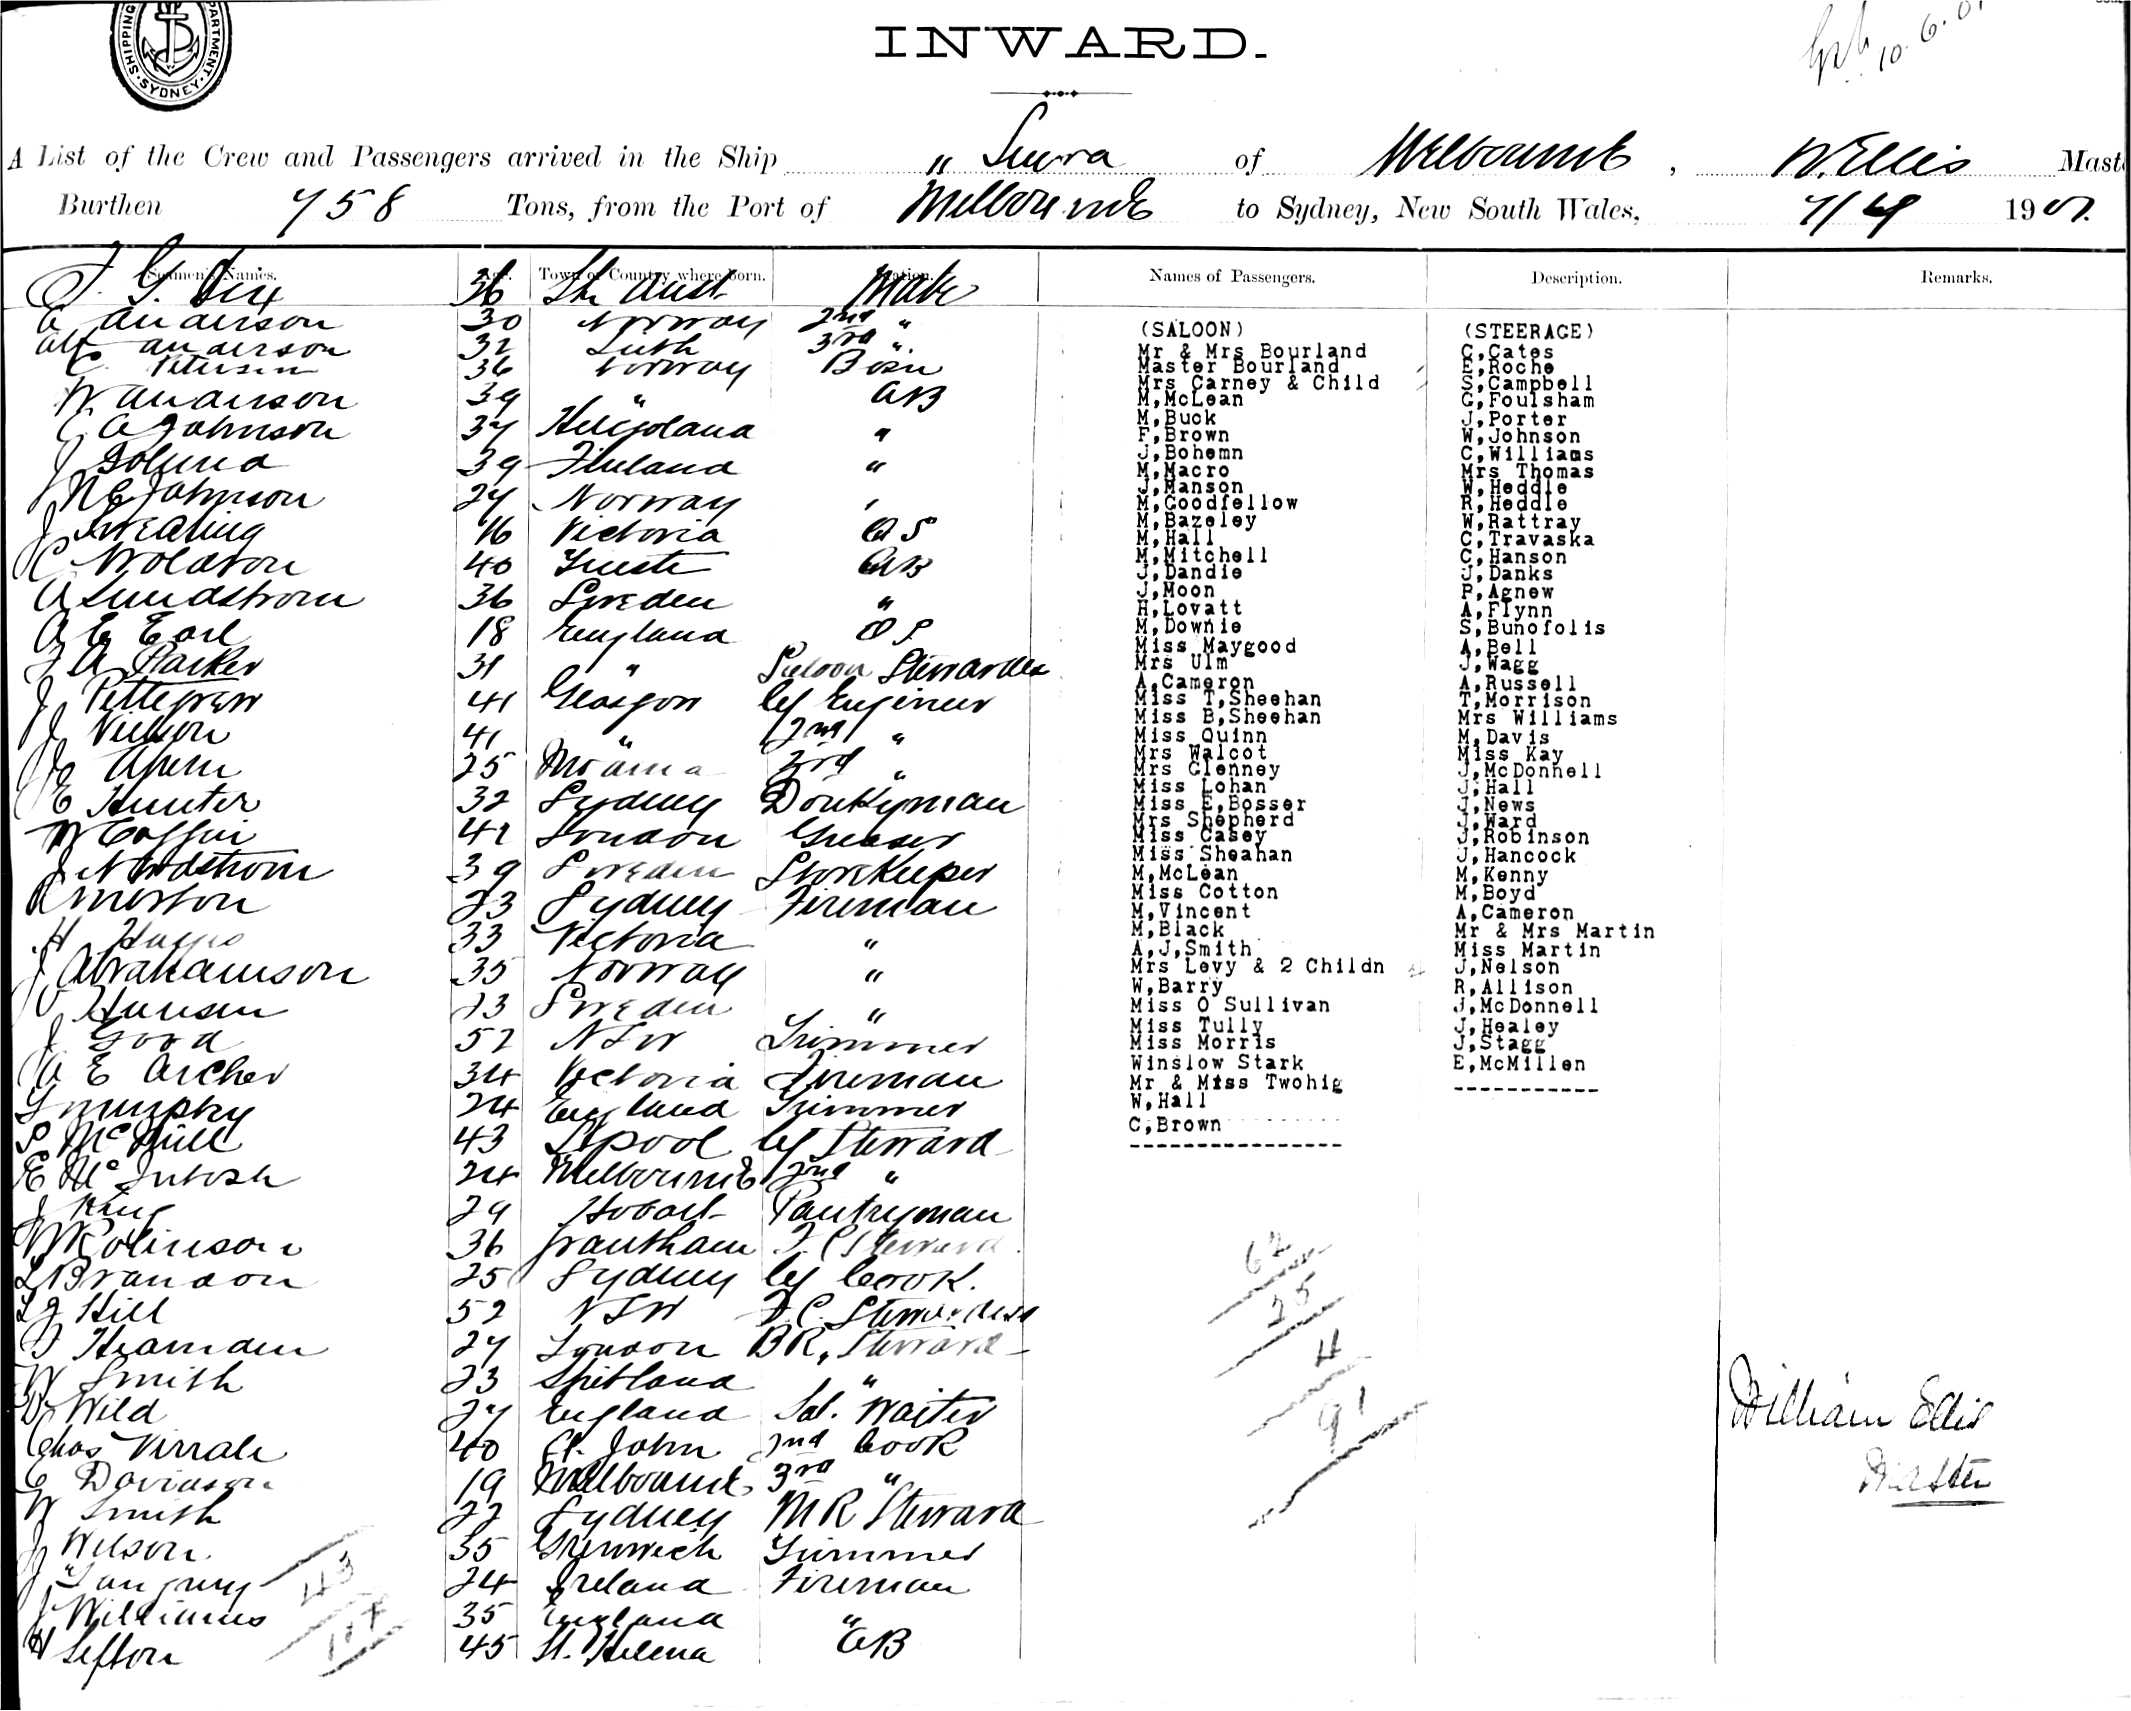 SHIPPING DEPARTMENT. SYDNEY
10.6.01
INWARD.
A List of the Crew and Passengers arrived in the Ship " of Melbourne, W. Ellis Mast
Burthen 758 Tons, from the Port of Melbourne to Sydney, New South Wales, 190
Seamen's Names. Age. Town or Country where born. Station. Names of Passengers. Description. Remarks.
36 Sth Aust Mate
(SALOON) (STEERAGE)
Anderson 30 Norway 2nd "
Anderson 32 Leith 3rd "
Petersen 36 Norway Bosn
W Anderson 39 " AB
C A Johnson 37 Heligoland "
39 Finland "
N E Johnson 27 Norway
16 Victoria OS
40 Trieste AB
A Lundstrom 36 Sweden "
A E Earl 18 England OS
F A Parker 31 " Saloon Stewardess
J Pettegrew 41 Glasgow Cf Engineer
J 41 " 2nd "
25 Moama 3rd "
E Hunter 32 Sydney Donkeyman
W Coffin 42 London Greaser
J Nordstrom 39 Sweden Storekeeper
23 Sydney Fireman
H 33 Victoria "
J Abrahamson 35 Norway "
Hansen 23 Sweden "
J Good 52 NSW Trimmer
A E Archer 34 Victoria Fireman
Murphy 24 England Trimmer
43 Lpool Cf Steward
E McIntosh 24 Melbourne 2nd "
J King 29 Hobart Pantryman
W Robinson 36 Grantham F C Steward
L Brandon 25 Sydney Cf Cook.
Hill 52 NSW F.C. Stewardess
27 London BR. Steward
W Smith 23 Shetland "
Wild 27 England Sal. Waiter
Chas Virrale 40 St. John 2nd Cook
Davidson 19 Melbourne 3rd "
W Smith 22 Sydney MR Steward
J Wilson 35 Greenwich Trimmer
J 24 Ireland Fireman
J Williams 35 England "
H Sefton 45 St. Helena AB
Mr & Mrs Bourland
Master Bourland
Mrs Carney & Child
M,McLean
M,Buck
F,Brown
J,Bohemn
M,Macro
J,Manson
M,Goodfellow
M,Bazeley
M,Hall
M,Mitchell
J,Dandie
J,Moon
H,Lovatt
M,Downie
Miss Maygood
Mrs Ulm
A,Cameron
Miss T,Sheehan
Miss B,Sheehan
Miss Quinn
Mrs Walcot
Mrs Glenney
Miss Lohan
Miss E,Bosser
Mrs Shepherd
Miss Casey
Miss Sheahan
M,McLean
Miss Cotton
M,Vincent
M,Black
A,J,Smith
Mrs Levy & 2 Childn
W,Barry
Miss O Sullivan
Miss Tully
Miss Morris
Winslow Stark
Mr & Miss Twohig
W,Hall
C,Brown
C,Cates
E,Roche
S,Campbell
G,Foulsham
J,Porter
W,Johnson
C,Williams
Mrs Thomas
W,Heddle
R,Heddle
W,Rattray
C,Travaska
C,Hanson
J,Danks
P,Agnew
A,Flynn
S,Bunofolis
A,Bell
J,Wagg
A,Russell
T,Morrison
Mrs Williams
M,Davis
Miss Kay
J,McDonnell
J,Hall
J,News
J,Ward
J,Robinson
J,Hancock
M,Kenny
M,Boyd
A,Cameron
Mr & Mrs Martin
Miss Martin
J,Nelson
R,Allison
J,McDonnell
J,Healey
J,Stagg
E,McMillen
62
25
4
91
43
William Ellis
Master